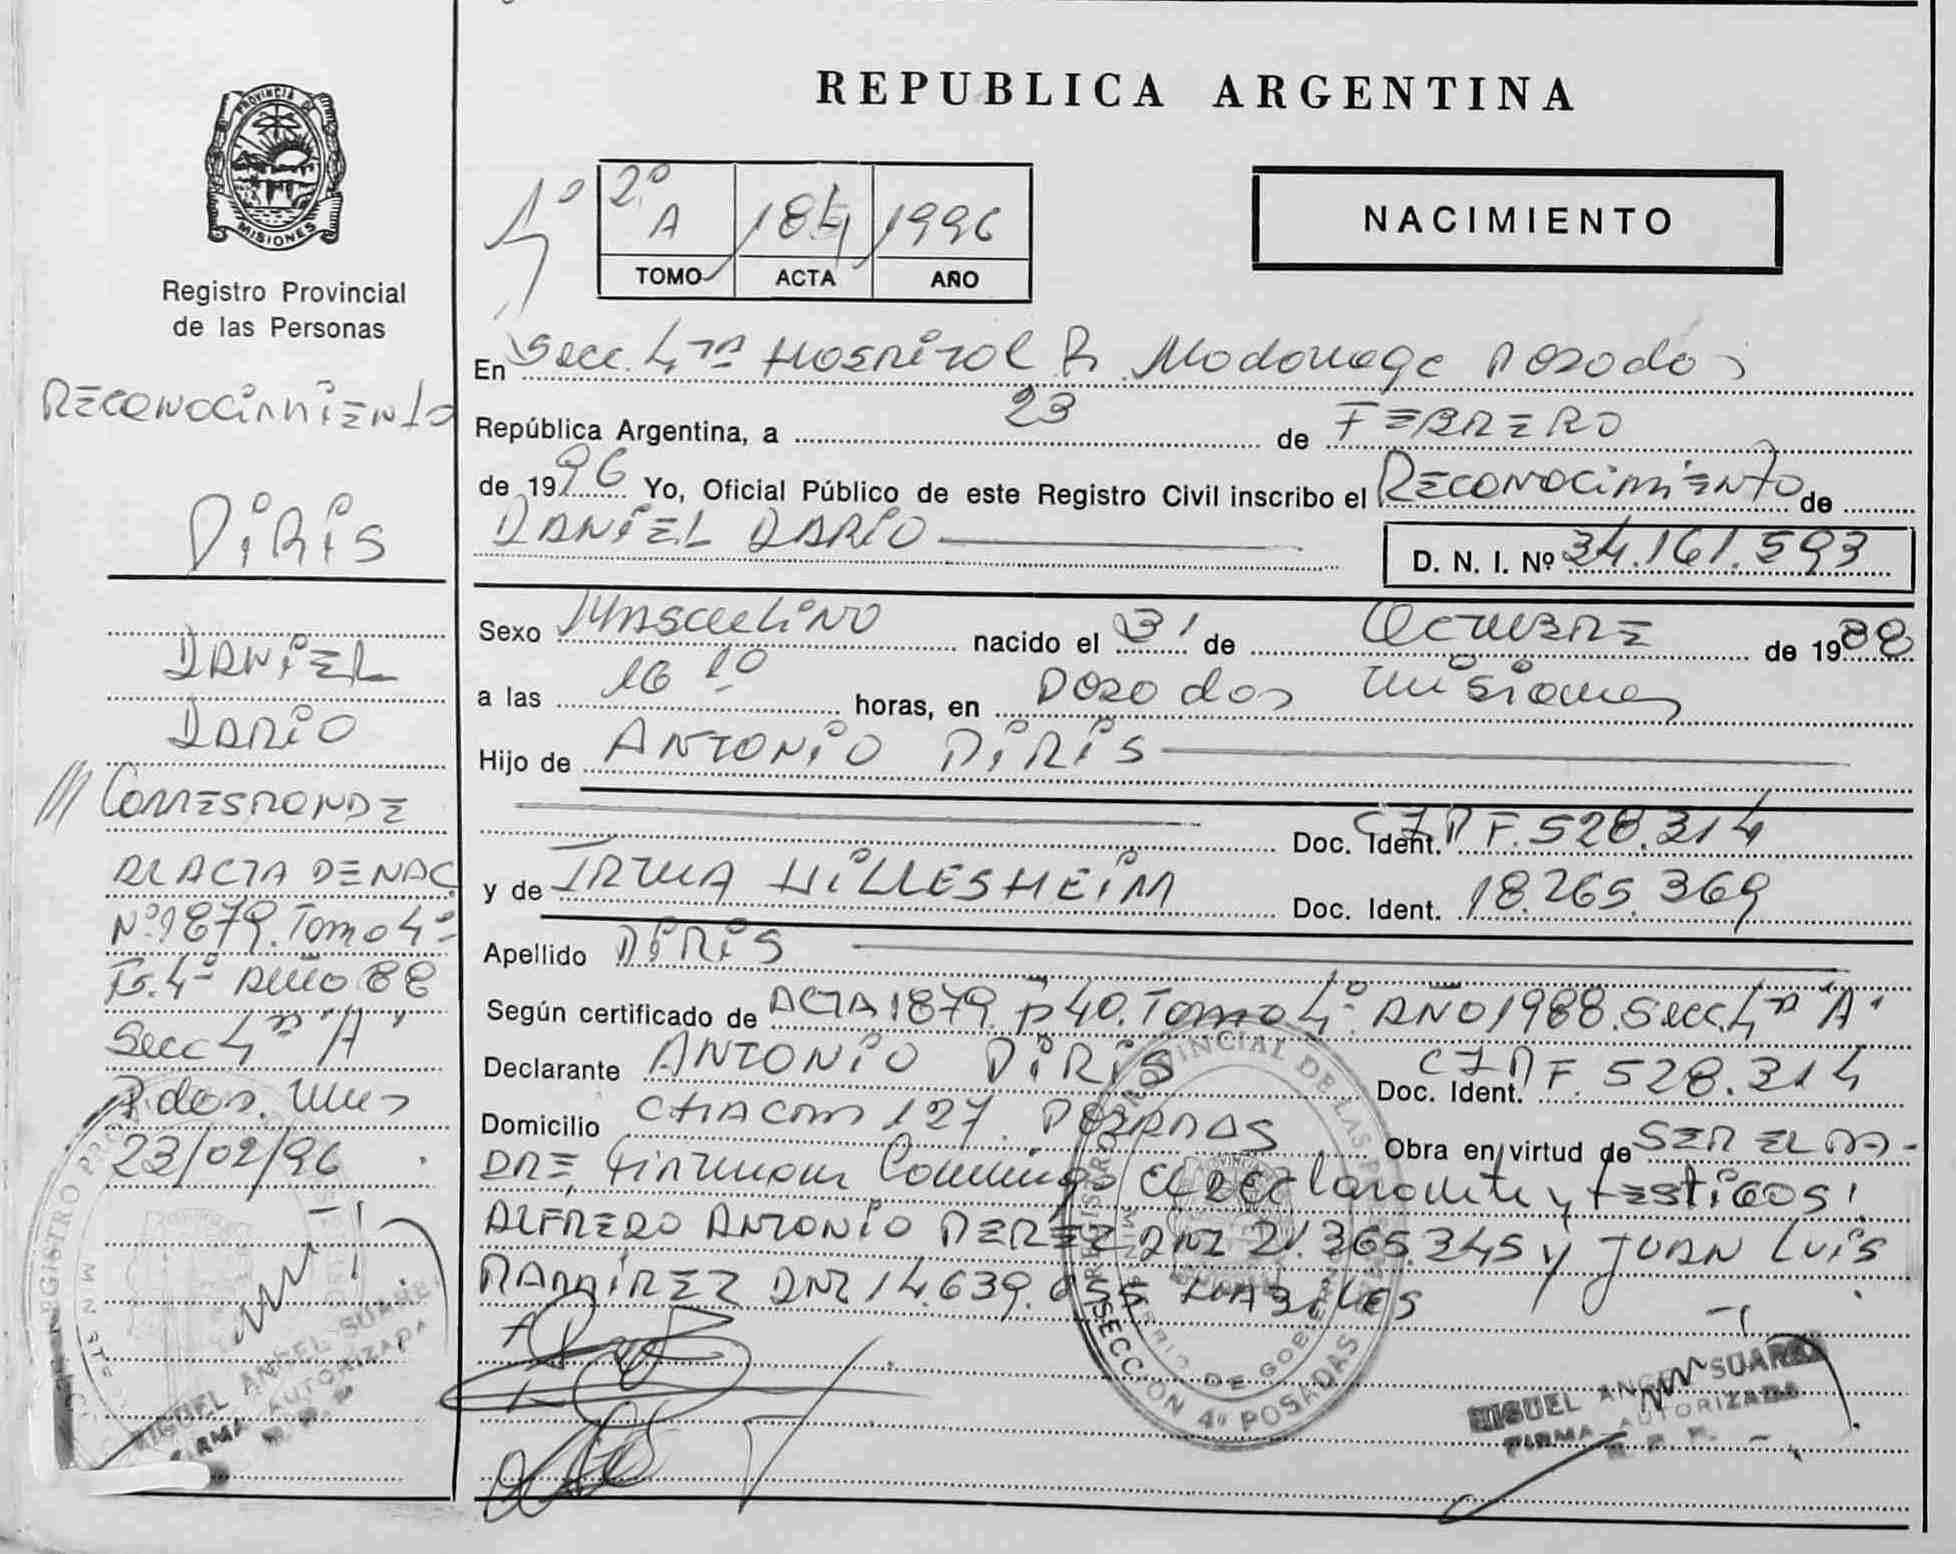 PROVINCIA DE
MISIONES
Registro Provincial
de las Personas
RECONOCIMIENTO
PIRIS
DANIEL
DARIO
/// CORRESPONDE
AL ACTA DE NAC.
Nº 1879. Tomo 4º
Fs. 4º AÑO 88
Secc 4ª "A"
Pdas. Mnes
23/02/96
MIGUEL ANGEL SUAREZ
FIRMA AUTORIZADA
R. P. P.
REPUBLICA ARGENTINA
1º 2º A 184 1996
TOMO ACTA AÑO
NACIMIENTO
En Secc. 4ta Hospital R. Madariaga Posadas
República Argentina, a 23 de FEBRERO
de 1996 Yo, Oficial Público de este Registro Civil inscribo el RECONOCIMIENTO de
DANIEL DARIO D. N. I. Nº 34.161.593
Sexo MASCULINO nacido el 31 de OCTUBRE de 1988
a las 16 10 horas, en Posadas Misiones
Hijo de ANTONIO PIRIS
Doc. Ident. CIPF. 528.314
y de IRMA HILLESHEIM Doc. Ident. 18.265.369
Apellido PIRIS
Según certificado de ACTA 1879. Fº 40. Tomo 4º. AÑO 1988. Secc. 4ª "A"
Declarante ANTONIO PIRIS Doc. Ident. CIPF 528.314
Domicilio CHACO 127. POSADAS Obra en virtud de SER EL PA-
DRE, Firman Conmigo el DECLarante y TESTIGOS:
ALFREDO ANTONIO PEREZ DNI 21.365.345 y JUAN LUIS
RAMIREZ DNI 14.639.055 HABILES
REGISTRO PROVINCIAL DE LAS PERSONAS
MINISTERIO DE GOBIERNO
SECCION 4ª POSADAS
MIGUEL ANGEL SUAREZ
FIRMA AUTORIZADA
R. P. P.